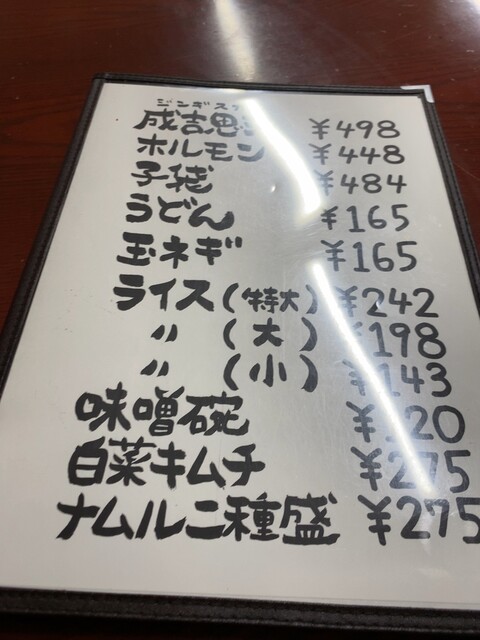 ジンギス
成吉思 ¥498
ホルモン ¥448
子袋 ¥484
うどん ¥165
玉ネギ ¥165
ライス(特大) ¥242
〃 (大) ¥198
〃 (小) ¥143
味噌碗
白菜キムチ ¥275
ナムル二種盛 ¥275